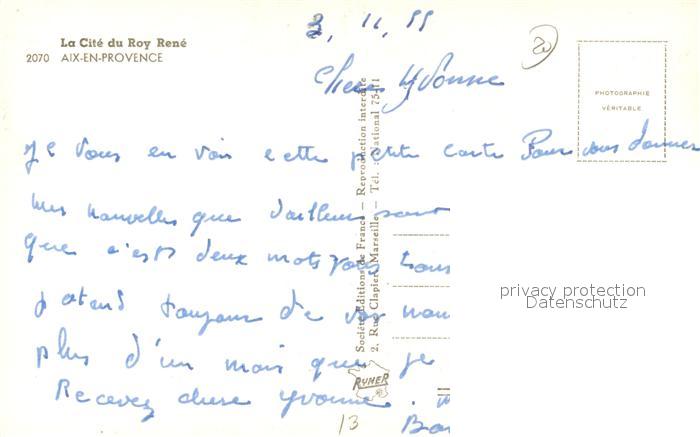 La Cité du Roy René
2070 AIX-EN-PROVENCE
3, 11, 55
Chere Yvonne
PHOTOGRAPHIE
VÉRITABLE
Je vous en vois cette petite carte Pour vous donner
mes nouvelles que d'ailleur sont
que c'est deux mots vous tous
j atend toujours de vos nou
plus d'un mois que je
Recevez chere Yvonne.
Société Editions de France — Reproduction interdite
2, Rue Clapier, Marseille — Tél. : National 75-11
RYNER
13
privacy protection
Datenschutz